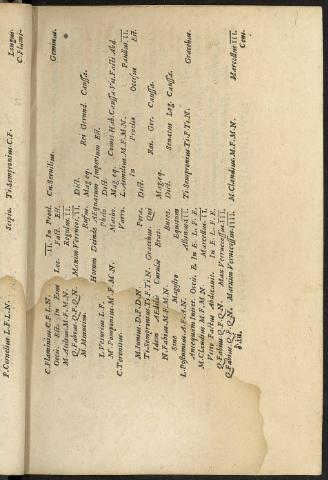 P. Cornelius L. F. L. N. Scipio. Ti. Sempronius C. F. Longus.
C. Flami-
C. Flaminius C. F. L. N. II. In Prœl. Cn. Servilius. Geminus.
Occis. Est. In Eius Loc. Fact. Est.
M. Atilius M. F. M. N. Regulus II.
Q. Fabius Q. F. Q. N. Maxim Verruc. II. Dict.
M. Minucius. Rufus. Mag. eq. Rei Gerund. Caussa.
Horum Deinde Æquatum Imperium Est.
L. Veturius L. F. Philo Dict.
M. Pomponius M. F. M. N. Matho. Mag. eq. Comit. Hab. Caussa Vit. Facti Abd.
C. Terentius Varro. L. Æmilius M. F. M. N. Paullus II.
In Prœlio Occisus Est.
M. Junius D. F. D. N. Pera. Dict.
Ti. Sempronius Ti. F. Ti. N. Gracchus. Qui Mag. eq. Rei Ger. Caussa.
Idem Ædilis Curulis Erat.
N. Fabius M. F. M. N. Buteo. Dict. Senatus Leg. Caussa.
Sine Magistro Equitum
L. Postumius A. F. A. N. Albinus III. Ti. Sempronius Ti. F. Ti. N. Gracchus.
Antequam Iniret Occis. E. In E. L. F. E.
M. Claudius M. F. M. N. Marcellus II.
Vitio Factus Abdicavit. In E. L. F. E.
Q. Fabius Q. F. Q. N. Max. Verrucossus III.
Q. Fabius Q. F. Q. N. Maxim Verrucossus IIII. M. Claudius M. F. M. N. Marcellus III.
Cens.